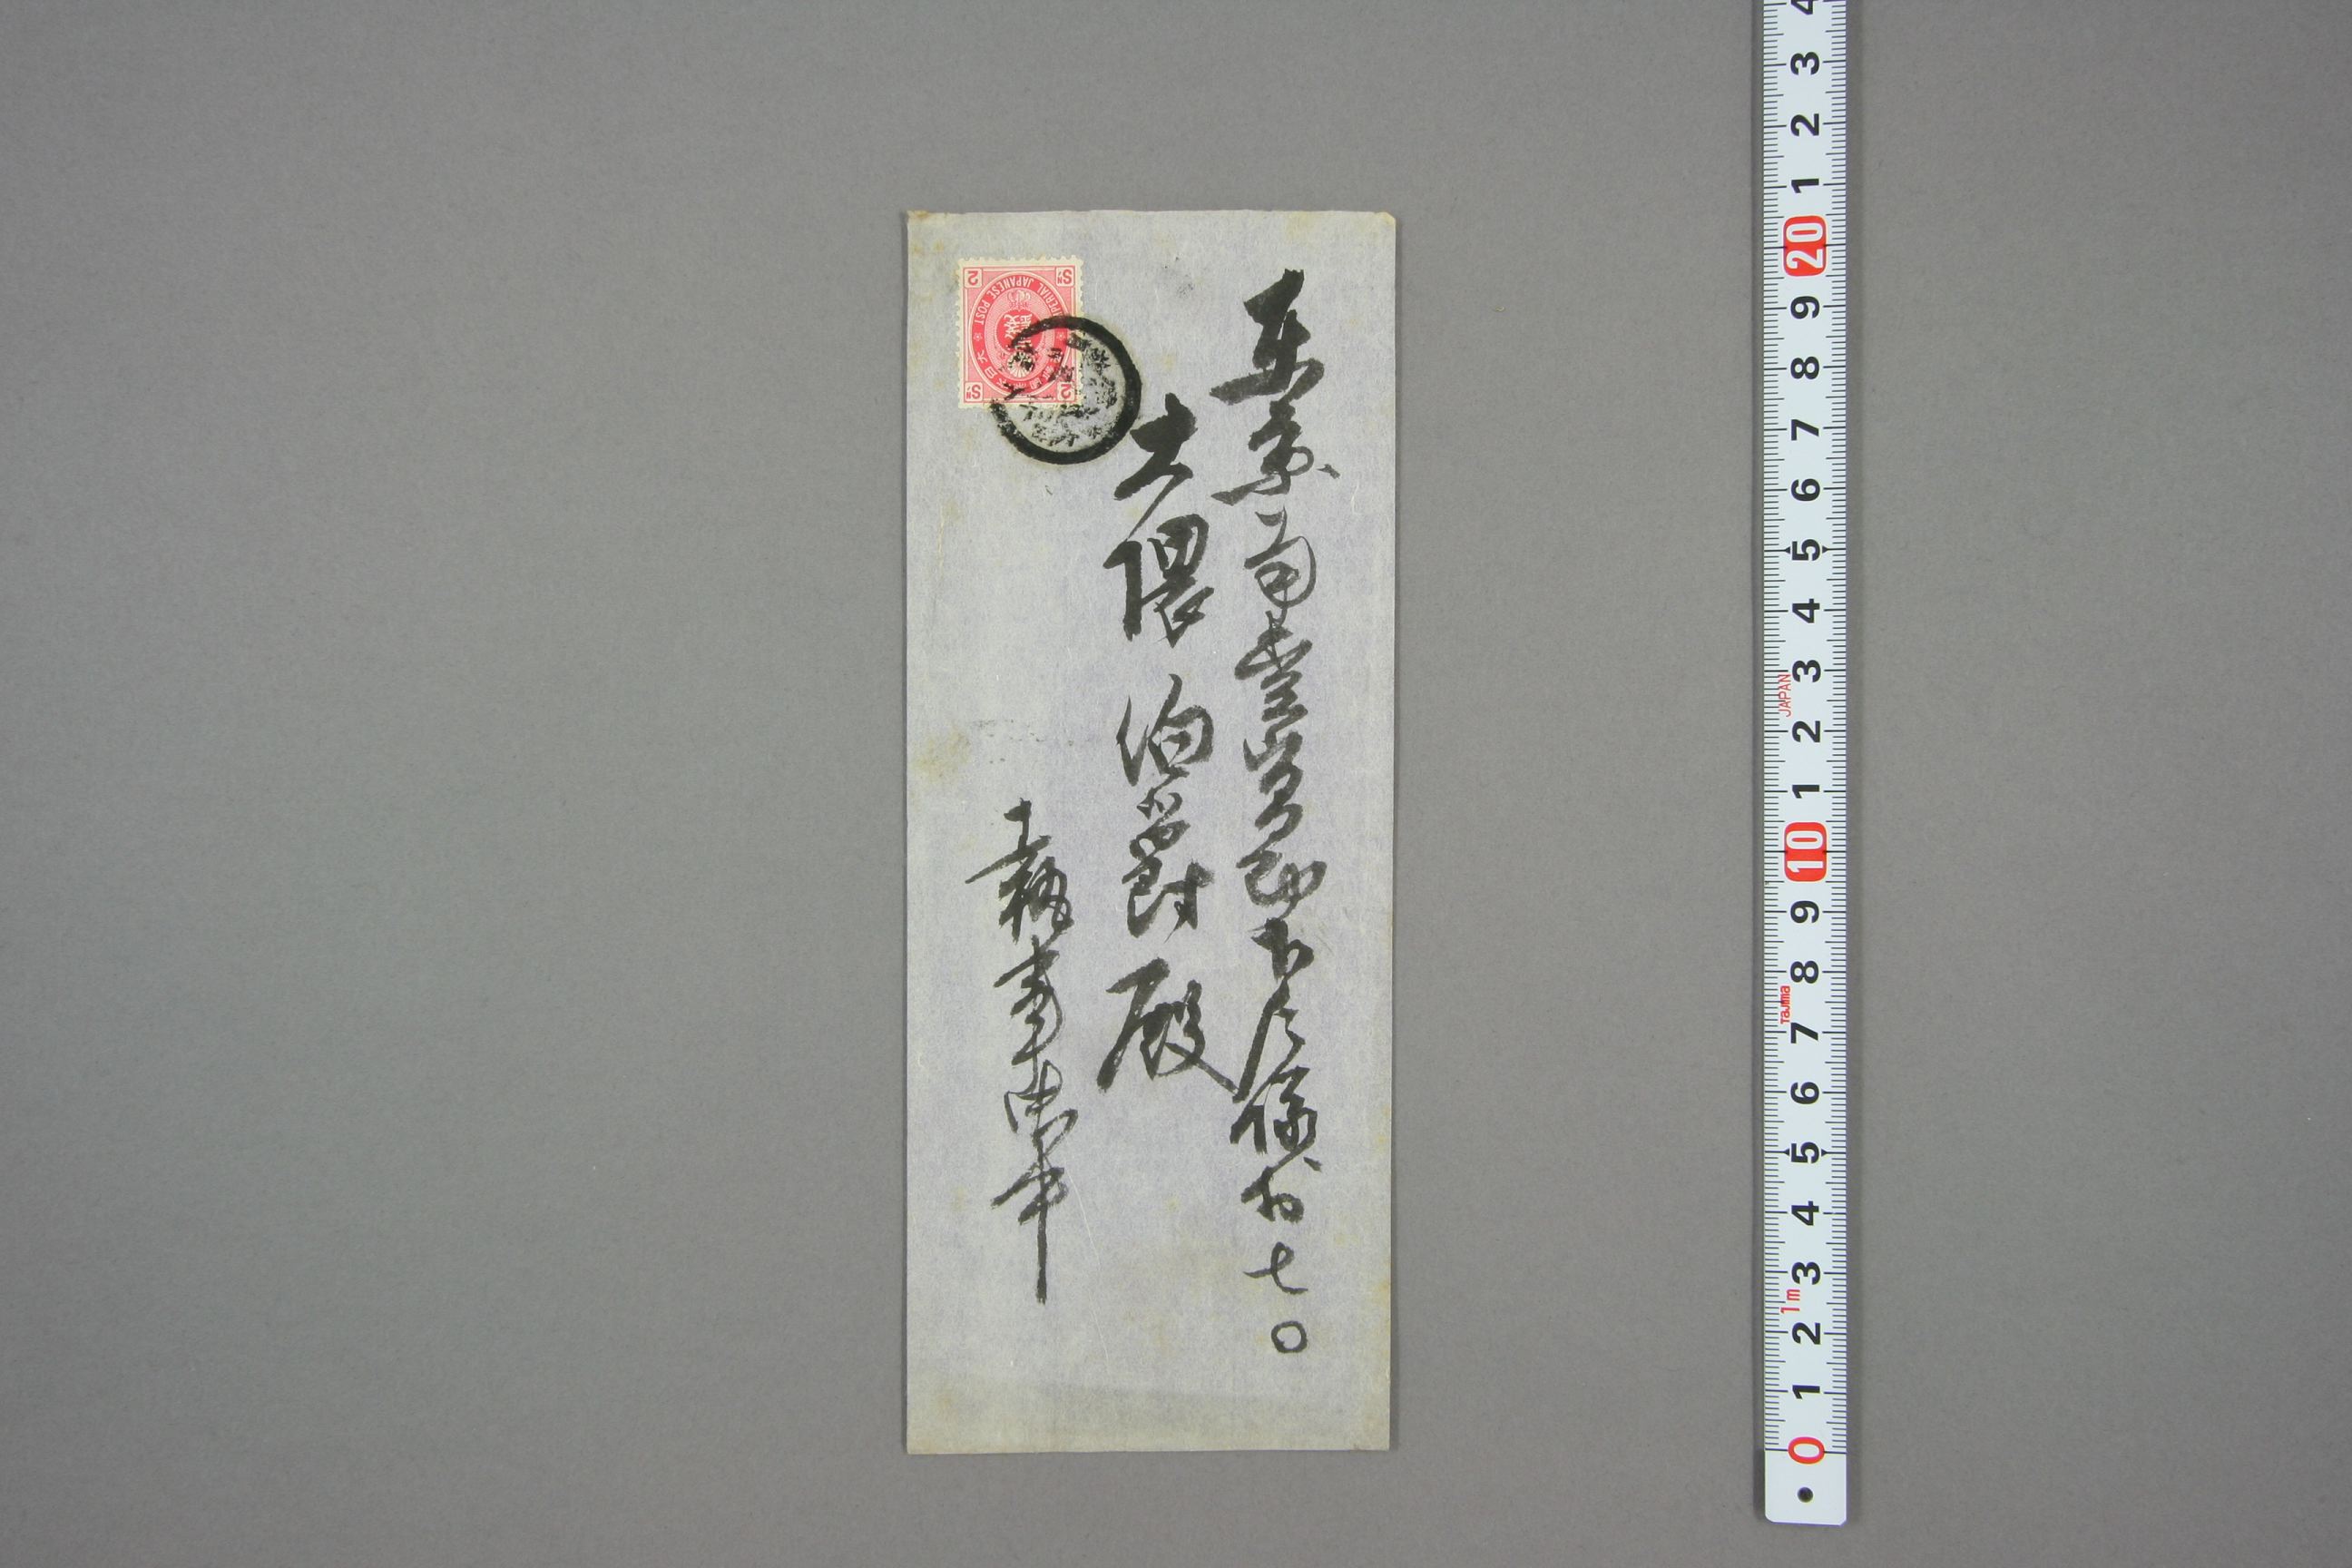 東京南豊嶌郡下戸塚村七〇
大隈伯爵殿
IMPERIAL JAPANESE POST
2 SN
2 SN
4
3
2
1
20
9
8
7
6
5
4
3
JAPAN
2
1
10
9
8
Tajima
7
6
5
4
3
1m
2
1
0